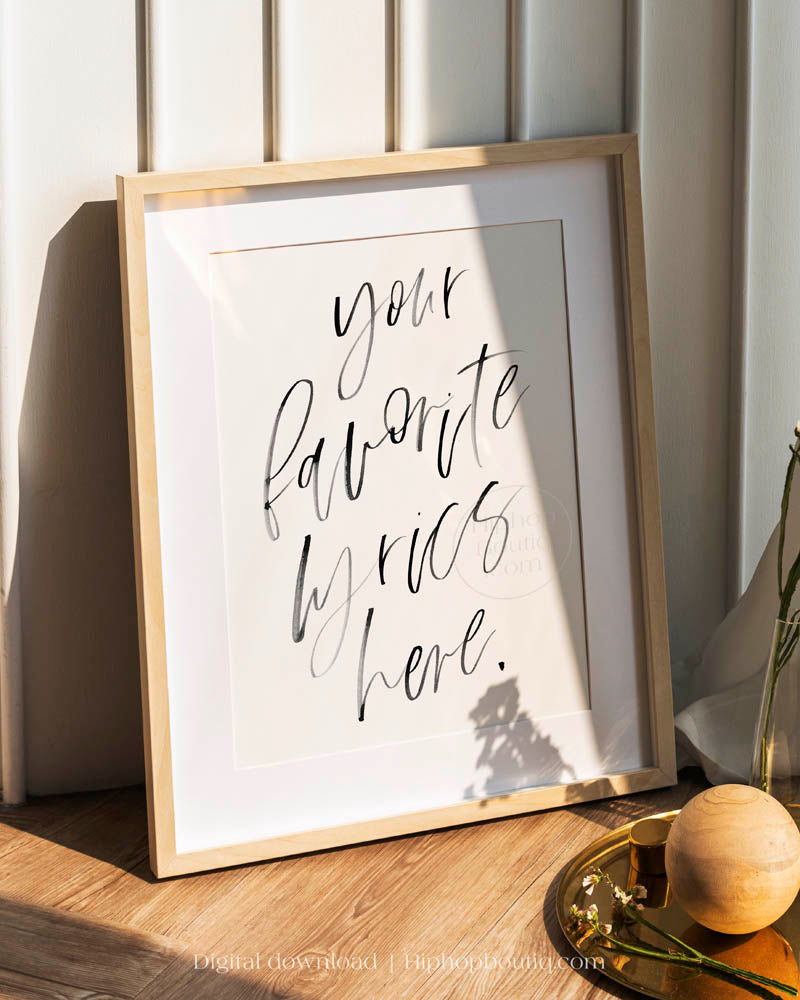 your
favorite
lyrics
here.
Hiphop
Boutiq
.com
Digital download | Hiphopboutiq.com